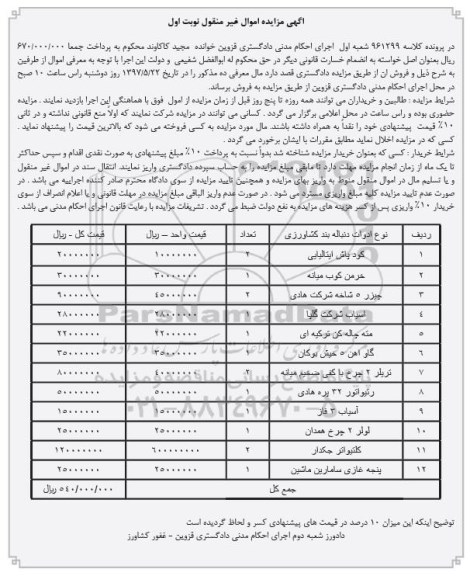 آگهی مزایده اموال غیر منقول نوبت اول
در پرونده کلاسه ۹۶۱۲۹۹ شعبه اول اجرای احکام مدنی دادگستری قزوین خوانده مجید کاکاوند محکوم به پرداخت جمعا ۶۷۰/۰۰۰/۰۰۰
ریال بعنوان اصل خواسته به انضمام خسارت قانونی دیگر در حق محکوم له ابوالفضل شفیعی و دولت این اجرا با توجه به معرفی اموال از طرفین
به شرح ذیل و فروش آن از طریق مزایده دادگستری قصد دارد مال معرفی ده مذکور را در تاریخ ۱۳۹۷/۵/۲۲ روز دوشنبه راس ساعت ۱۰ صبح
در محل اجرای احکام مدنی دادگستری قزوین از طریق مزایده به فروش برساند.
شرایط مزایده : طالبین و خریداران می توانند همه روزه تا پنج روز قبل از زمان مزایده از اموال فوق با هماهنگی این اجرا بازدید نمایند . مزایده
حضوری بوده و راس ساعت در محل اعلامی برگزار می گردد . کسانی می توانند در مزایده شرکت نمایند که اولاً منع قانونی نداشته و در ثانی
۱۰٪ قیمت پیشنهادی خود را نقداً به همراه داشته باشند. مال مورد مزایده به کسی فروخته می شود که بالاترین قیمت را پیشنهاد نماید .
کسی که در مزایده اخلال نماید مطابق مقررات با ایشان برخورد می گردد .
شرایط خریدار : کسی که بعنوان خریدار مزایده شناخته شد بدواً نسبت به پرداخت ۱۰٪ مبلغ پیشنهادی به صورت نقدی اقدام و سپس حداکثر
تا یک ماه از زمان انجام مزایده مهلت دارد تا مابقی مبلغ مزایده را به حساب سپرده دادگستری واریز نماید. انتقال سند در اموال غیر منقول
و یا تسلیم مال در اموال منقول منوط به واریز بهای مزایده و همچنین تایید مزایده از سوی دادگاه محترم صادر کننده اجراییه می باشد . در
صورت عدم تایید مزایده کلیه مبلغ واریزی مسترد می شود . در صورت عدم واریز الباقی مبلغ مزایده در مهلت قانونی و یا اعلام انصراف از سوی
خریدار ۱۰٪ واریزی پس از کسر هزینه های مزایده به نفع دولت ضبط می گردد . تشریفات مزایده با رعایت قانون اجرای احکام مدنی می باشد .
ردیف نوع ادوات دنباله بند کشاورزی تعداد قیمت واحد – ریال قیمت کل - ریال
۱ کود پاش ایتالیایی ۲ ۱۰۰۰۰۰۰۰ ۲۰۰۰۰۰۰۰
۲ خرمن کوب میانه ۱ ۳۰۰۰۰۰۰۰ ۳۰۰۰۰۰۰۰
۳ چیزر ۵ شاخه شرکت هادی ۲ ۴۵۰۰۰۰۰۰ ۶۰۰۰۰۰۰۰
۴ آسیاب شرکت گلپا ۱ ۲۸۰۰۰۰۰۰ ۲۸۰۰۰۰۰۰
۵ مته چاله کن ترکیه ای ۱ ۲۲۰۰۰۰۰۰ ۲۲۰۰۰۰۰۰
۶ گاو آهن ۵ خیش بوکان ۱ ۳۵۰۰۰۰۰۰ ۳۵۰۰۰۰۰۰
۷ تریلر ۲ چرخ با کفی میانه ۲ ۴۰۰۰۰۰۰۰ ۸۰۰۰۰۰۰۰
۸ رتیواتور ۳۲ پره هادی ۱ ۵۰۰۰۰۰۰۰ ۵۰۰۰۰۰۰۰
۹ آسیاب ۳ فاز ۱ ۱۵۰۰۰۰۰۰ ۱۵۰۰۰۰۰۰
۱۰ لولر ۲ چرخ همدان ۱ ۲۵۰۰۰۰۰۰ ۲۵۰۰۰۰۰۰
۱۱ کلتیواتر جکدار ۲ ۶۰۰۰۰۰۰۰ ۱۲۰۰۰۰۰۰۰
۱۲ پنجه غازی سامارین ماشین ۱ ۲۵۰۰۰۰۰۰ ۲۵۰۰۰۰۰۰
جمع کل ۵۴۰/۰۰۰/۰۰۰ ریال
توضیح اینکه این میزان ۱۰ درصد در قیمت های پیشنهادی کسر و لحاظ گردیده است
دادورز شعبه دوم اجرای احکام مدنی دادگستری قزوین - غفور کشاورز
ParsNamadData
۰۲۱-۸۸۳۴۹۶۷۰-۵